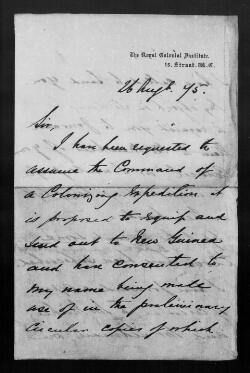 The Royal Colonial Institute.
15, Strand. W.C.
26 Augt. /75.
Sir,
I have been requested to
assume the Command of
a Colonizing Expedition it
is proposed to equip and
send out to New Guinea
and have consented to
my name being made
use of in the preliminary
Circular copies of which